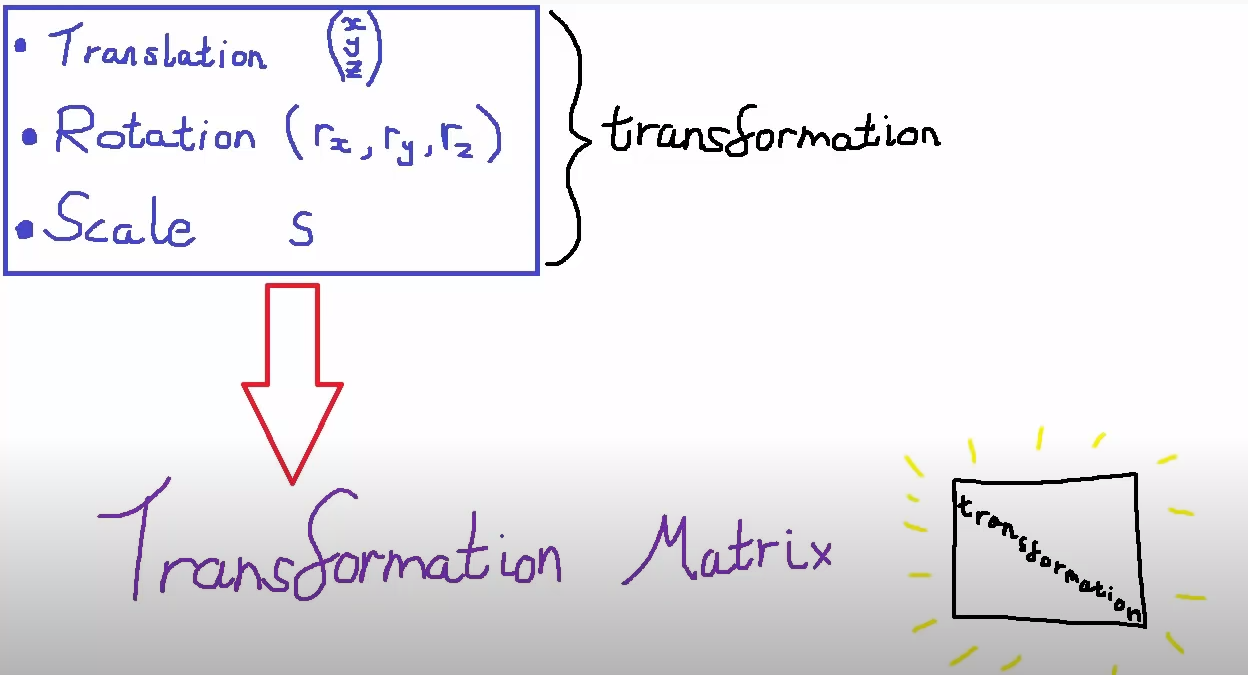 • Translation (x y z)
• Rotation (rx, ry, rz)
• Scale s
transformation
Transformation Matrix
transformation